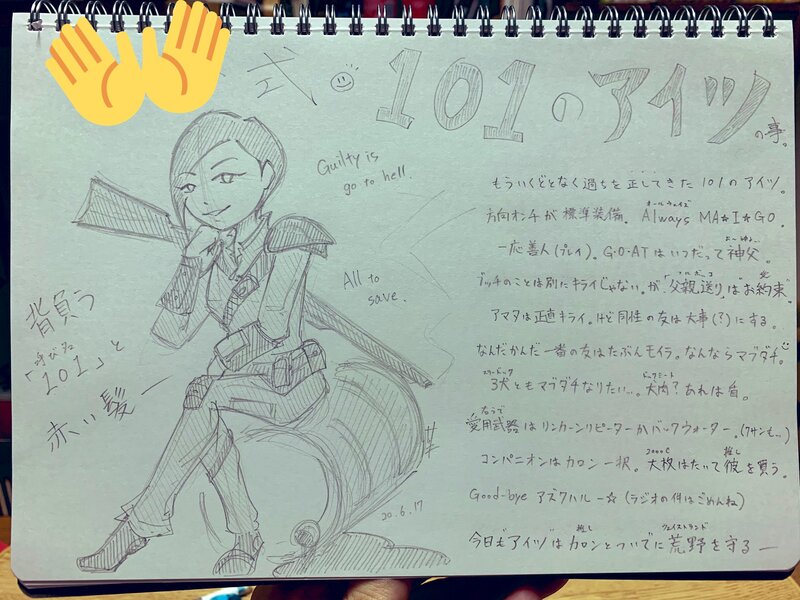 式。101のアイツの事。
Guilty is
go to hell.
All to
save.
背負う
呼び名
「101」と
赤い髪ー
もういくどとなく過ちを正してきた101のアイツ。
オールウェイズ
方向オンチが標準装備。Always MA☆I☆GO.
一応善人(プレイ)。G.O.ATはいつだって神父。
ブッチのことは別にキライじゃない。が、「父親送り」は"お約束"
アマタは正直キライ。けど同性の友は大事(?)にする。
なんだかんだ一番の友はたぶんモイラ。なんならマブダチ。
スリードッグ ドッグミート
3犬ともマブダチなりたい…。犬肉?あれは盾。
愛用武器はリンカーンリピーターかバックウォーター。(アサンも…)
2000C 推し
コンパニオンはカロン一択。大枚はたいて彼を買う。
Good-bye アズクハルー☆(ラジオの件はごめんね)
推し ウェイストランド
今日もアイツはカロンとついでに荒野を守るー
20.6.17